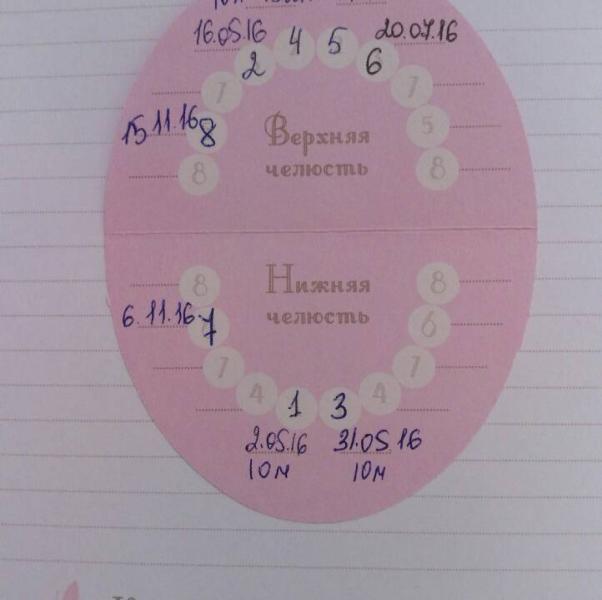 16.05.16 4 5 20.07.16
2 6
7 7
15.11.16 8 Верхняя 5
8 челюсть 8
8 Нижняя 8
6.11.16 7 челюсть 6
7 7
4 1 3 4
2.05.16 31.05.16
10м 10м